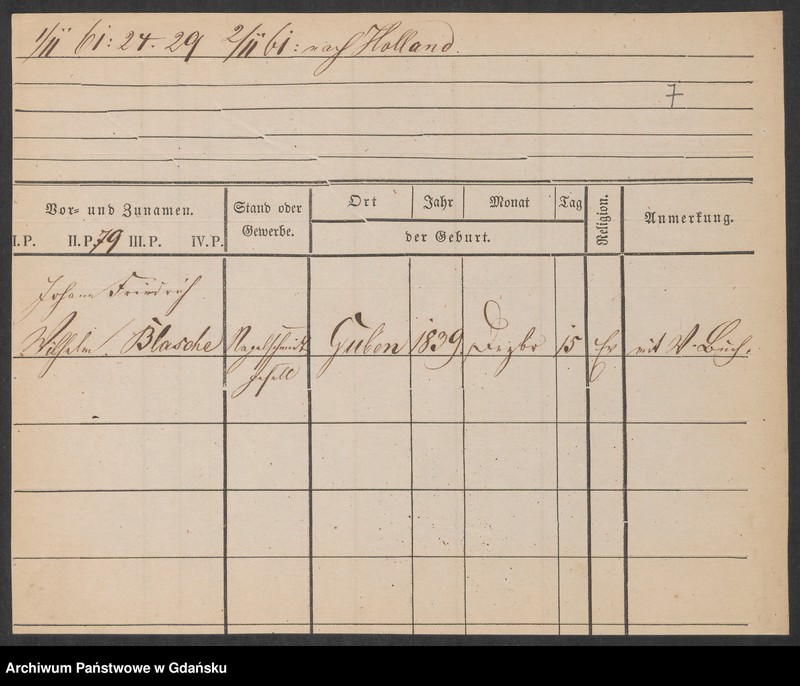 1/11 61: 24. 29 2/11 61: nach Holland.
7
Vor= und Zunamen.
I.P. II.P. 79 III.P. IV.P.
Stand oder
Gewerbe.
Ort Jahr Monat Tag
der Geburt.
Religion.
Anmerkung.
Johann Friedrich
Wilhelm Blasche Nagelschmidt Guben 1839 Dezbr 15 Ev mit W. Buch.
gesell
Archiwum Państwowe w Gdańsku